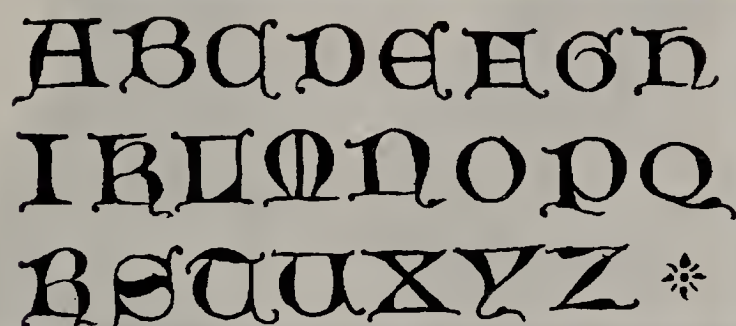 A B C D E F G H
I K L M N O P Q
R S T U X Y Z